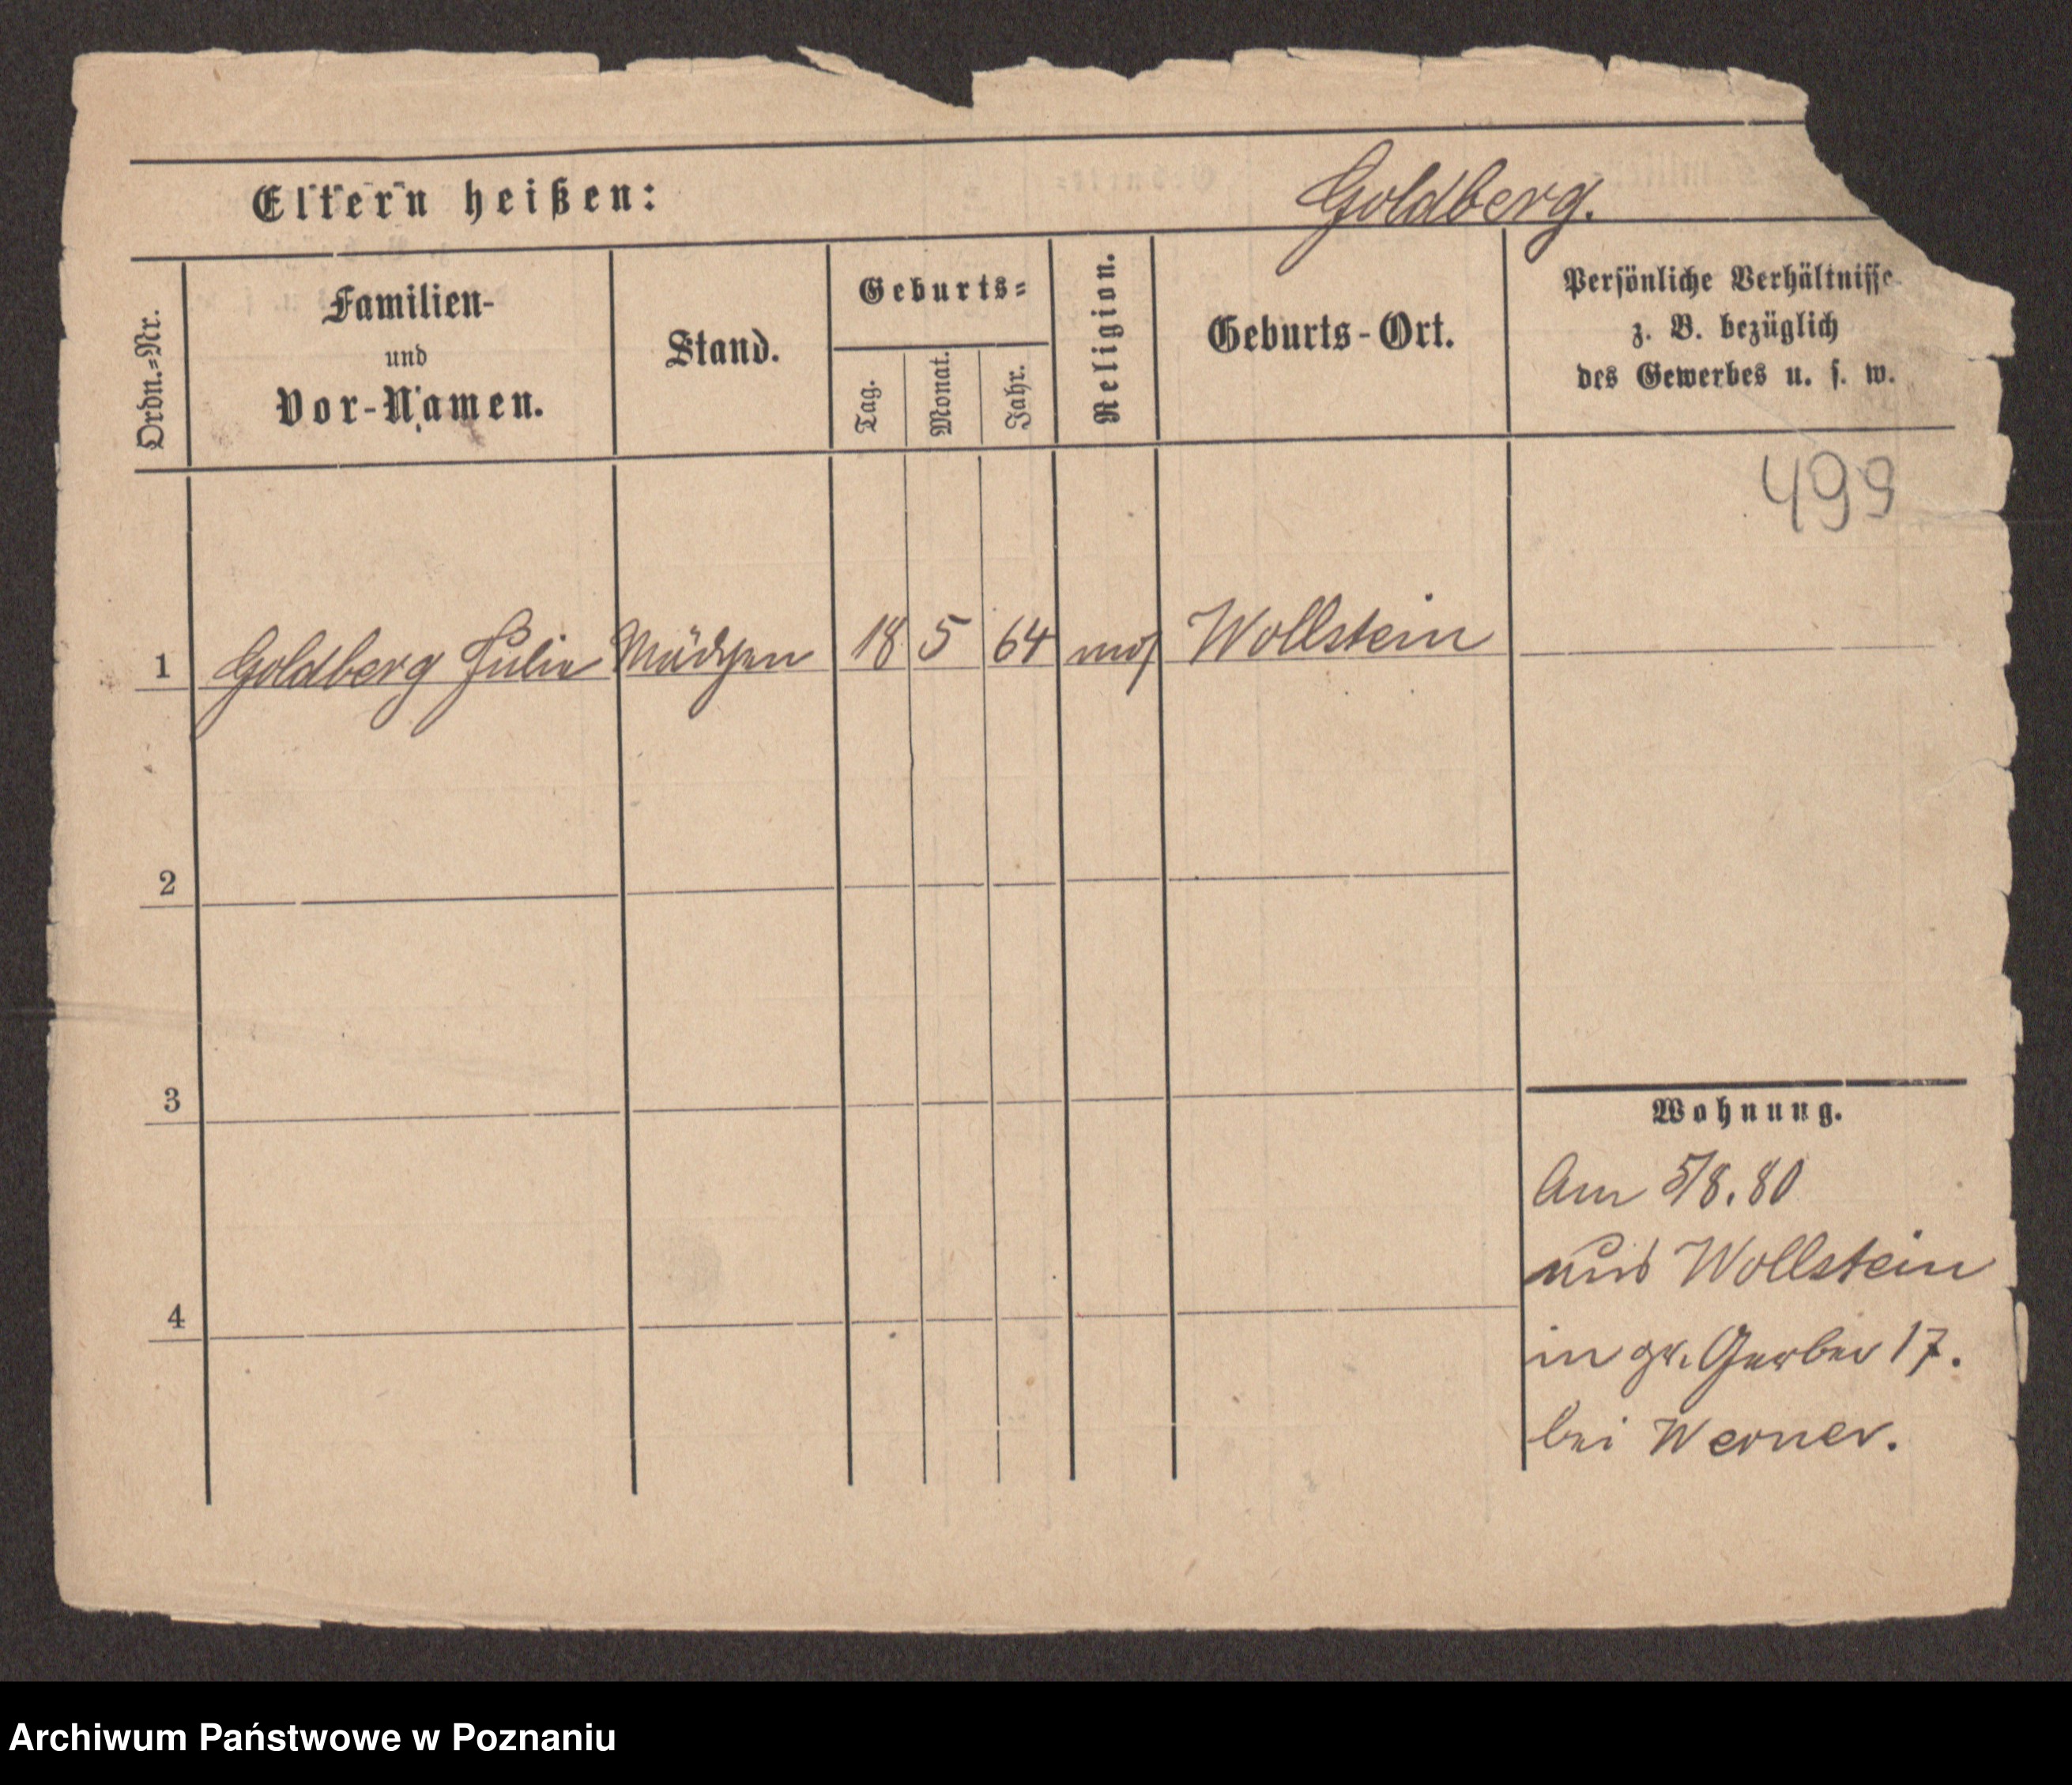 Eltern heißen:
Goldberg.
Ordn.=Nr.
Familien-
und
Vor-Namen.
Stand.
Geburts=
Tag.
Monat.
Jahr.
Religion.
Geburts-Ort.
Persönliche Verhältnisse
z. B. bezüglich
des Gewerbes u. s. w.
499
1 Goldberg Julie Mädchen 18 5 64 mos Wollstein
2
3
4
Wohnung.
Am 5/8.80
aus Wollstein
in gr. Gerber 17.
bei Werner.
Archiwum Państwowe w Poznaniu